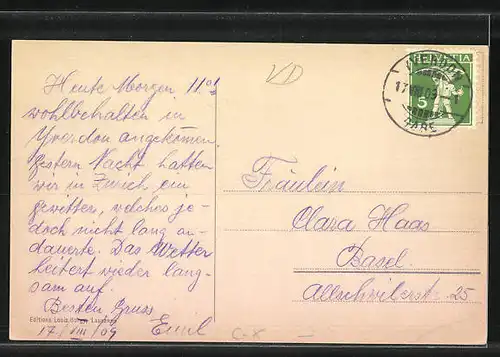 Heute Morgen 11 01
wohlbehalten in
Yverdon angekommen.
gestern Nacht hatten
wir in Zürich ein
gewitter, welches je-
doch nicht lang an-
dauerte. Das Wetter
heitert wieder lang-
sam auf.
Besten Gruss
17/VIII/09 Emil
Editions Louis Lausanne
VD
HELVETIA
5
YVERDON
17 VIII 09 1
GARE
Fräulein
Clara Haas
Basel
Allschwilerstr. 25
C-X